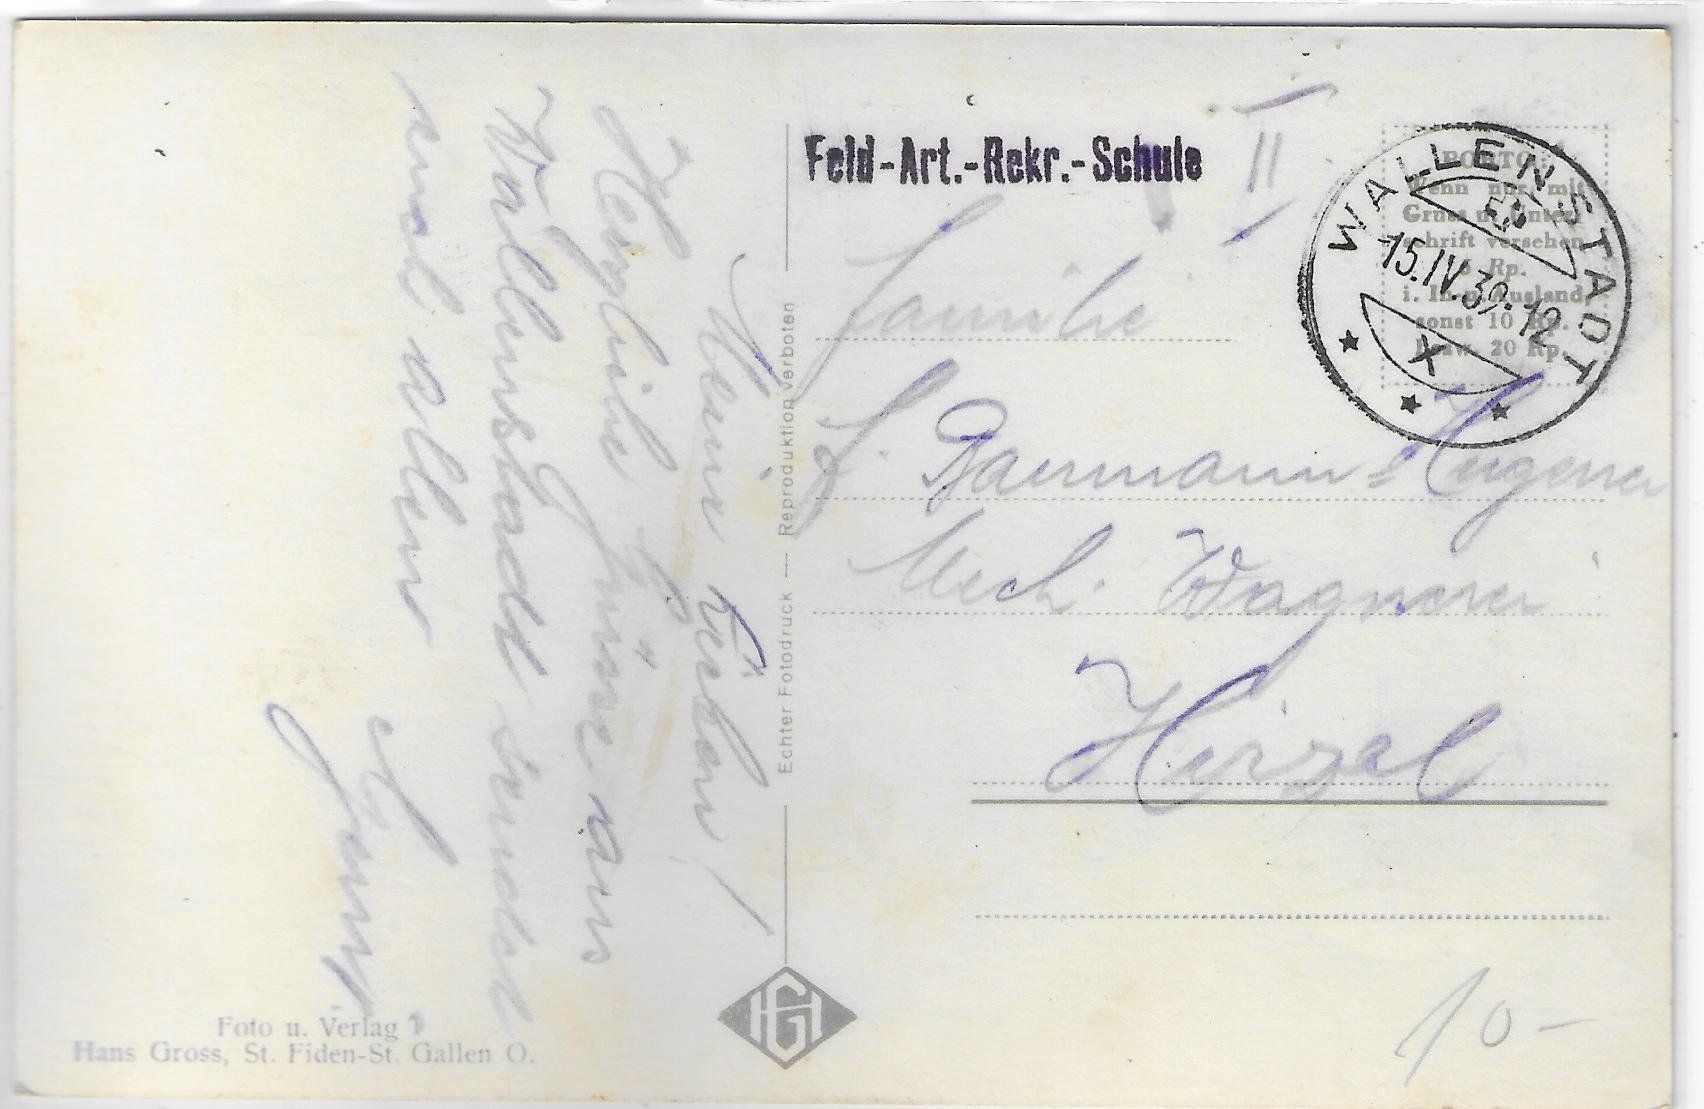 Mein Lieben!
Herzliche Grüsse aus
Wallenstadt sendet
euch allen
Foto u. Verlag
Hans Gross, St. Fiden-St. Gallen O.
Echter Fotodruck — Reproduktion verboten
HG
Feld-Art.-Rekr.-Schule II
WALLENSTADT
15.IV.39.12
X
PORTO:
Wenn nur mit
Gruss u. Unter-
schrift versehen
5 Rp.
i. In- u. Ausland,
sonst 10 Rp.
bezw. 20 Rp.
Familie
Baumann-Hugener
Mech. Wagnerei
Hirzel
10-